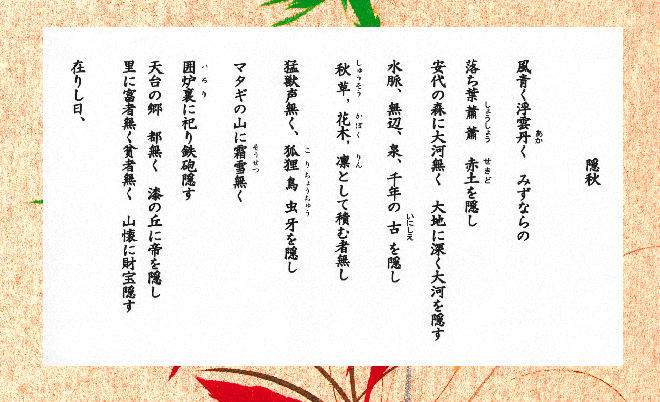 隠秋
風青く浮雲丹く　みずならの
落ち葉蕭蕭　赤土を隠し
安代の森に大河無く　大地に深く大河を隠す
水脈、無辺、泉、千年の古を隠し
秋草，花木，凛として積む者無し
猛獣声無く、狐狸鳥虫牙を隠し
マタギの山に霜雪無く
囲炉裏に祀り鉄砲隠す
天台の郷　都無く　漆の丘に帝を隠し
里に富者無く貧者無く　山懐に財宝隠す
在りし日、